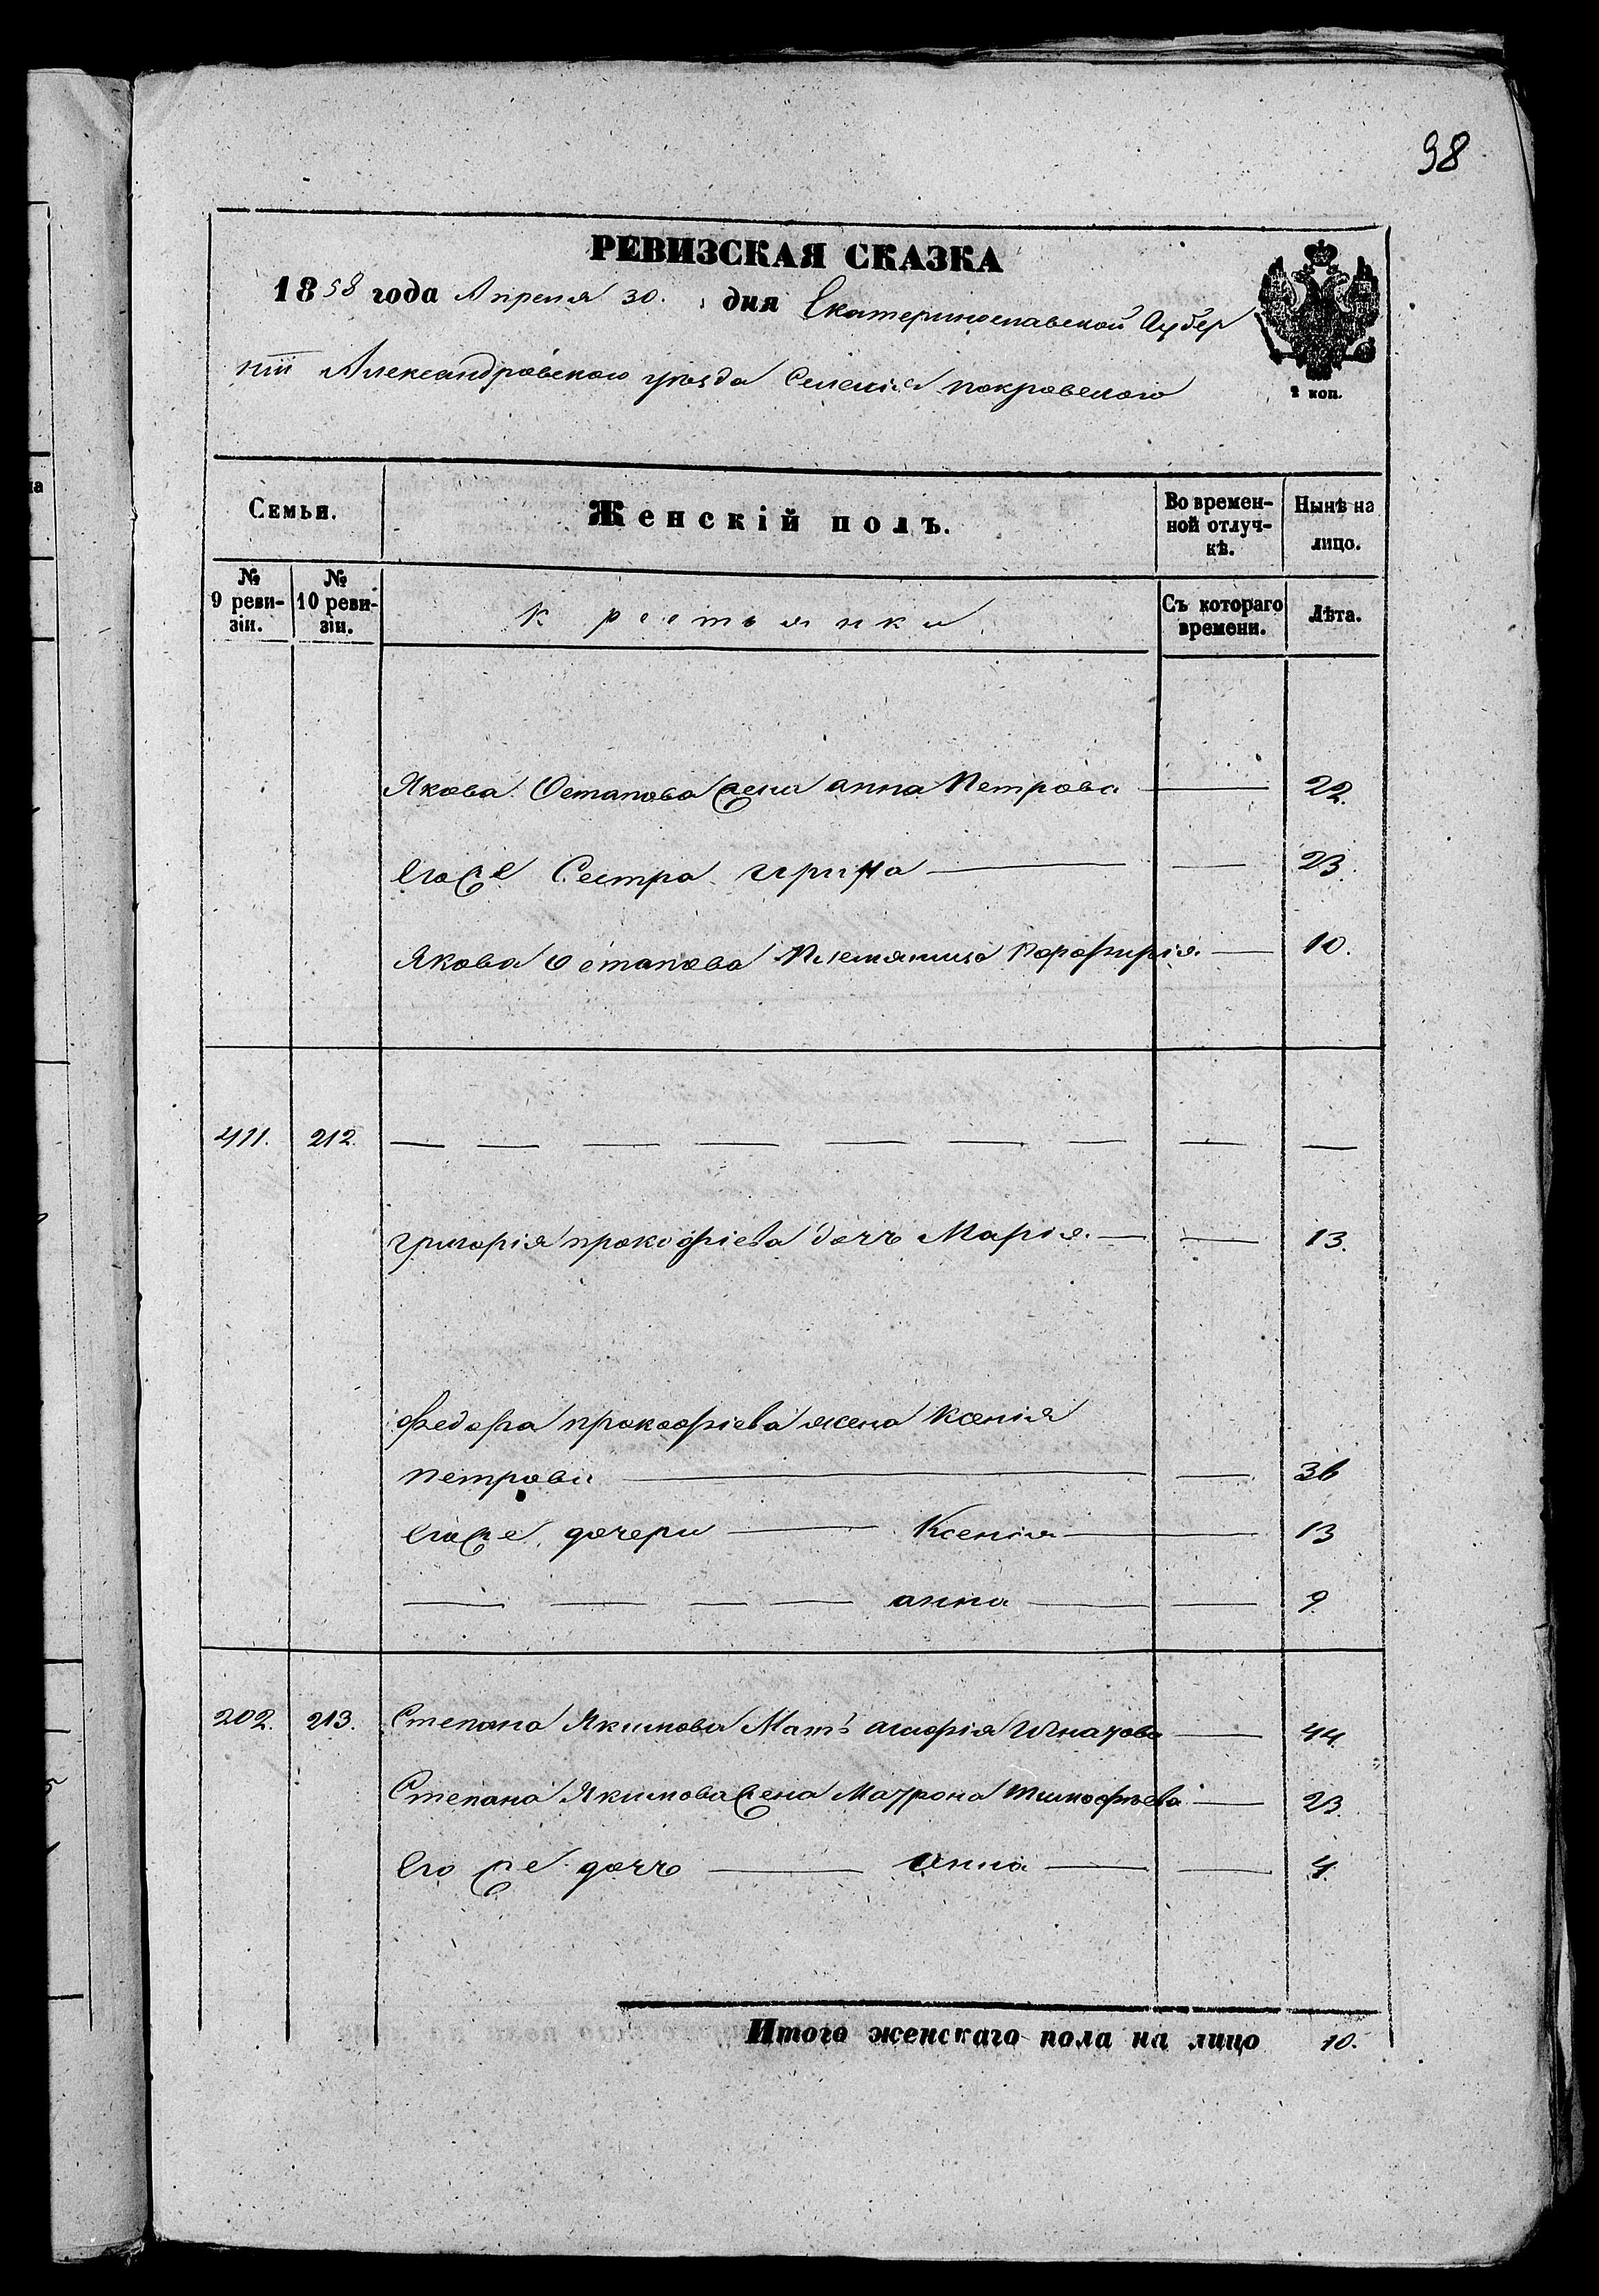 98
РЕВИЗСКАЯ СКАЗКА
1858 года Апреля 30. дня Екатеринославской Губер
ніи Александровского уезда Селенія покровского
2 коп.
Семьи. Женскій полъ. Во времен- Нынѣ на
ной отлуч- лицо.
кѣ.
№ № крестьянки Съ котораго Лѣта.
9 реви- 10 реви- времени.
зіи. зіи.
Якова Остапова жена анна Петрова — 22.
егоже Сестра ирина — — 23.
Якова Остапова Племяница Порфирія. — 10.
411. 212. — — — — — — — — —
григорія прокофіева дочь Марія. — — 13.
федора прокофіева жена Ксенія
петрова — — 36
егоже дочери — Ксенія — 13
— — — — анна — — 9
202. 213. Степана Якимова Мать Игнатова — 44.
Степана Якимова жена Матрона тимофѣева — 23
его же дочь — анна — — 4.
Итого женскаго пола на лицо 10.